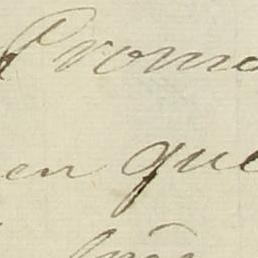 Prome
en que